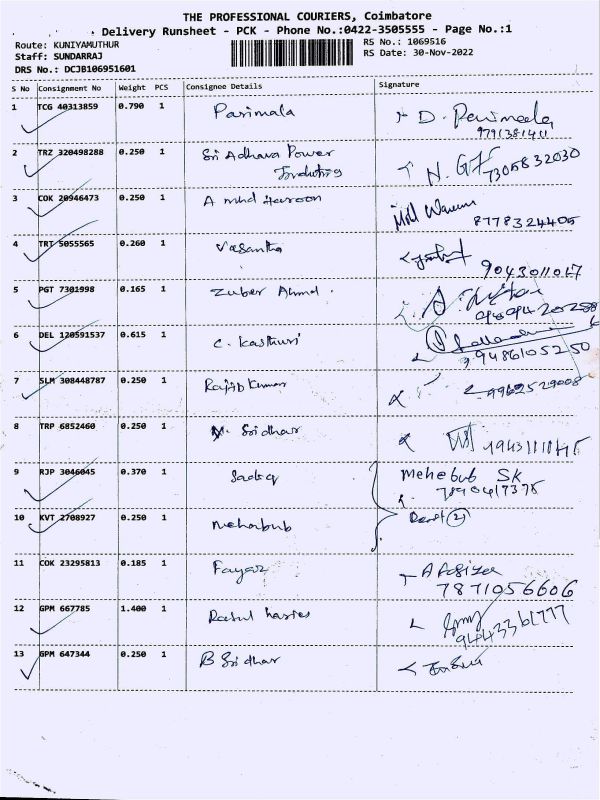 THE PROFESSIONAL COURIERS, Coimbatore
Delivery Runsheet - PCK - Phone No.:0422-3505555 - Page No.:1
Route: KUNIYAMUTHUR
RS No.: 1069516
Staff: SUNDARRAJ
RS Date: 30-Nov-2022
DRS No.: DCJB106951601
S No Consignment No Weight PCS Consignee Details Signature
1 TCG 40313859 0.790 1 Parimala D. Parimala
9791381411
2 TRZ 320498288 0.250 1 Sri Adhava Power
7305832030
3 COK 20946473 0.250 1 A mhd Haroon
8778324405
4 TRT 5055565 0.260 1 Vasantha
9043011017
5 PGT 7301998 0.165 1 Zuber Ahmd.
6 DEL 120591537 0.615 1 C. Kasthuri
9486105250
7 SLM 308448787 0.250 1 Rajib Kumar
9962529008
8 TRP 6852460 0.250 1 M. Sridhar
9 RJP 3046045 0.370 1 Sadiq Mehebub SK
7890417375
10 KVT 2708927 0.250 1 Mehabub
11 COK 23295813 0.185 1 Fayaz
7871056606
12 GPM 667785 1.400 1
9443361777
13 GPM 647344 0.250 1 B Sridhar